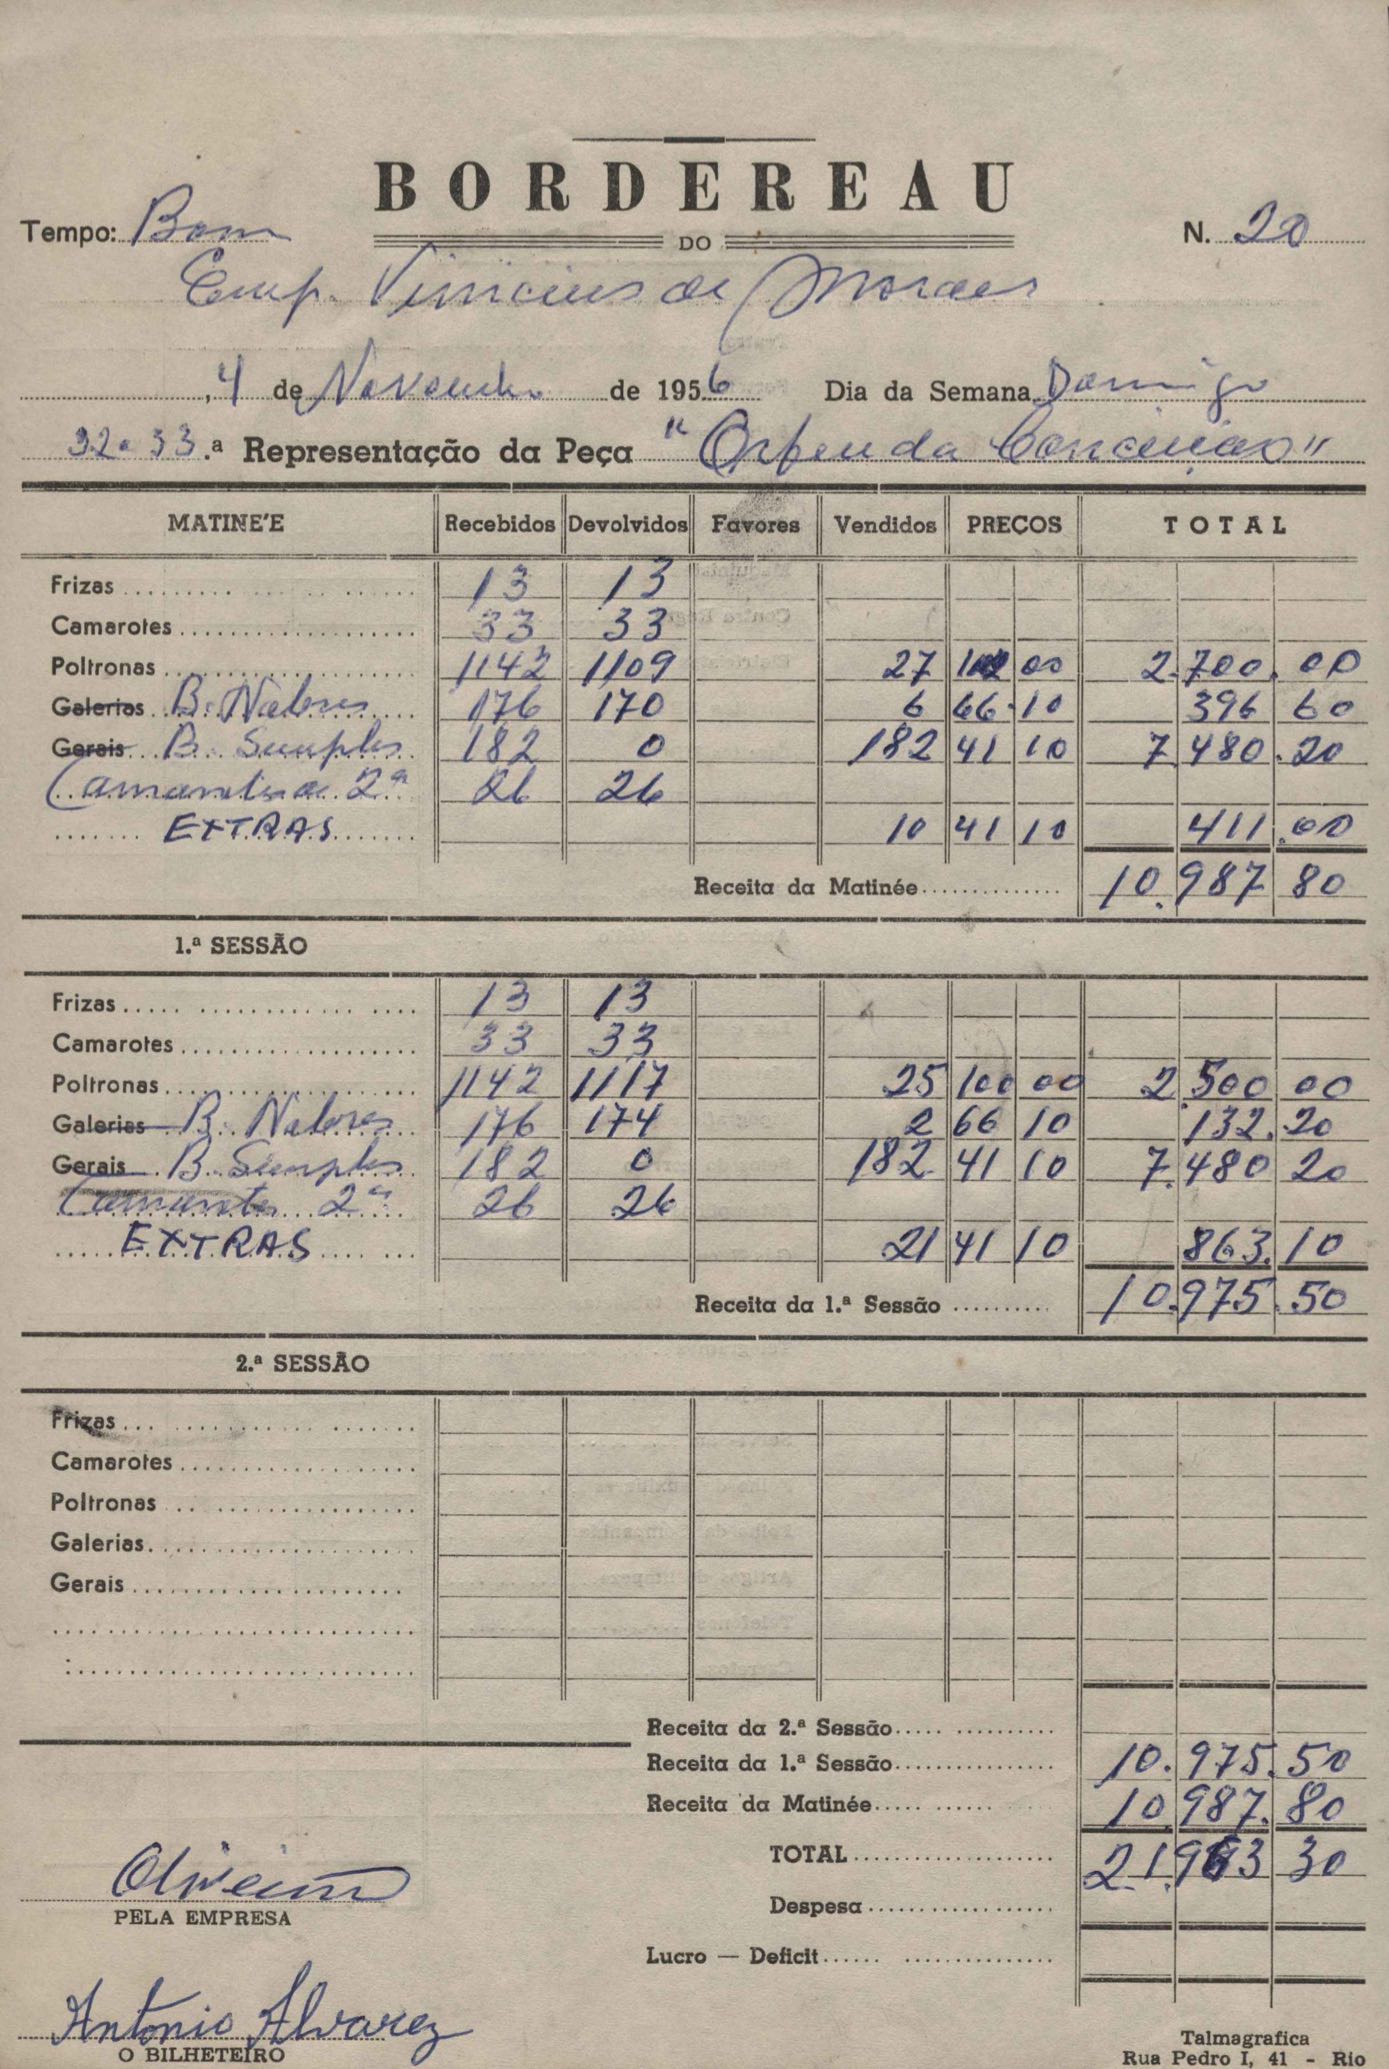 BORDEREAU
Tempo: Bom
DO
N. 20
Emp. Vinicius de Moraes
, 4 de Novembro de 1956 Dia da Semana Domingo
32a 33.ª Representação da Peça " "Orfeu da Conceição"
MATINE'E Recebidos Devolvidos Favores Vendidos PREÇOS TOTAL
Frizas 13 13
Camarotes 33 33
Poltronas 1142 1109 27 100 00 2.700.00
Galerias B. Nobres 176 170 6 66.10 396 60
Gerais B. Simples 182 0 182 41 10 7.480.20
Camarotes de 2ª 26 26
EXTRAS 10 41 10 411.00
Receita da Matinée 10.987 80
1.ª SESSÃO
Frizas 13 13
Camarotes 33 33
Poltronas 1142 1117 25 100 00 2.500 00
Galerias B. Nobres 176 174 2 66 10 132.20
Gerais B. Simples 182 0 182 41 10 7.480 20
Camarotes 2ª 26 26
EXTRAS 21 41 10 863.10
Receita da 1.ª Sessão 10.975.50
2.ª SESSÃO
Frizas
Camarotes
Poltronas
Galerias
Gerais
Receita da 2.ª Sessão
Receita da 1.ª Sessão 10.975.50
Receita da Matinée 10.987.80
TOTAL 21.963 30
Despesa
Lucro — Deficit
Oliveira
PELA EMPRESA
Antonio Alvarez
O BILHETEIRO
Talmagrafica
Rua Pedro I, 41 - Rio